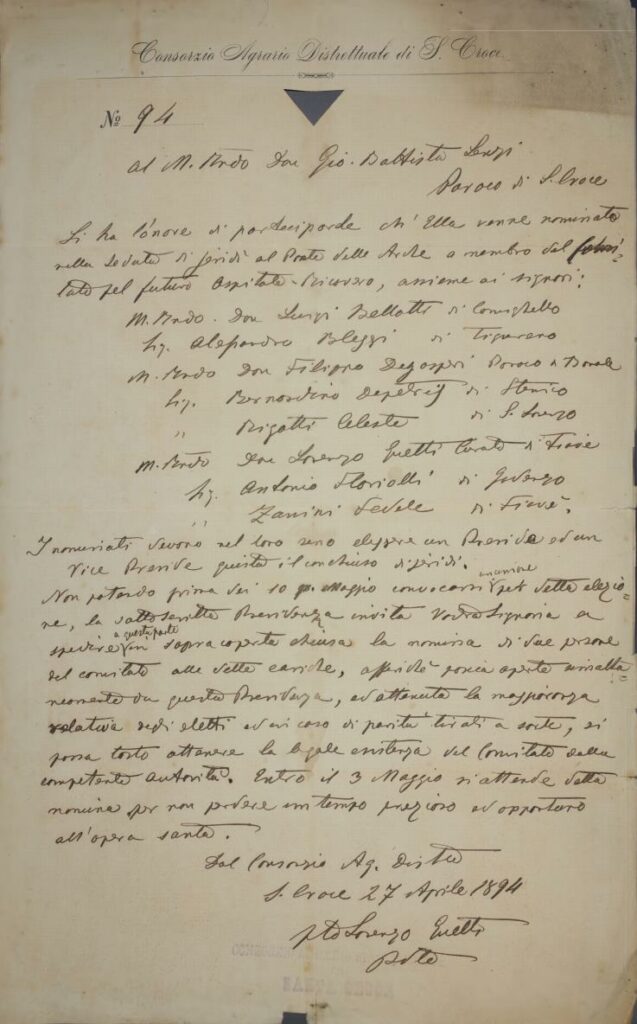 Consorzio Agrario Distrettuale di S. Croce
No 94
Al M. Rndo Don Gio. Battista Lenzi
Paroco di S. Croce
Si ha l'onore di parteciparle ch' Ella venne nominato
nella seduta di jeridì al Ponte delle Arche a membro del Comi=
tato pel futuro Ospitale-Ricovero, assieme ai signori:
M. Rndo. Don Luigi Bellotti di Comighello
Sig. Alesandro Bleggi di
M. Rndo Don Filippo Degasperi Paroco a
Sig. Bernardino Depetris di Stenico
" Rigotti Celeste di S. Lorenzo
M. Rndo Don Lorenzo Guetti Curato di Fiavè
Sig. Antonio Floriolli di Godenzo
" Zanini Fedele di Fiavè.
I nominati devono nel loro seno eleggere un Preside ed un
Vice Preside giusta il conchiuso di jeridì.
Non potendo prima dei 10 p. Maggio convocarsi unione per detta elezio=
ne, la sottoscritta Presidenza invita Vostra Signoria a
spedire a questa parte in sopracoperta chiusa la nomina di due persone
del comitato alle dette cariche, affinchè poscia aperte
da questa Presidenza, ed ottenuta la maggioranza
relativa degli eletti ed in caso di parità tirati a sorte, si
possa tosto ottenere la legale esistenza del Comitato dalla
competente Autorità. Entro il 3 Maggio si attende detta
nomina per non perdere un tempo prezioso ed opportuno
all'opera santa.
Dal Consorzio Ag. Distle
S. Croce 27 Aprile 1894
Lorenzo Guetti